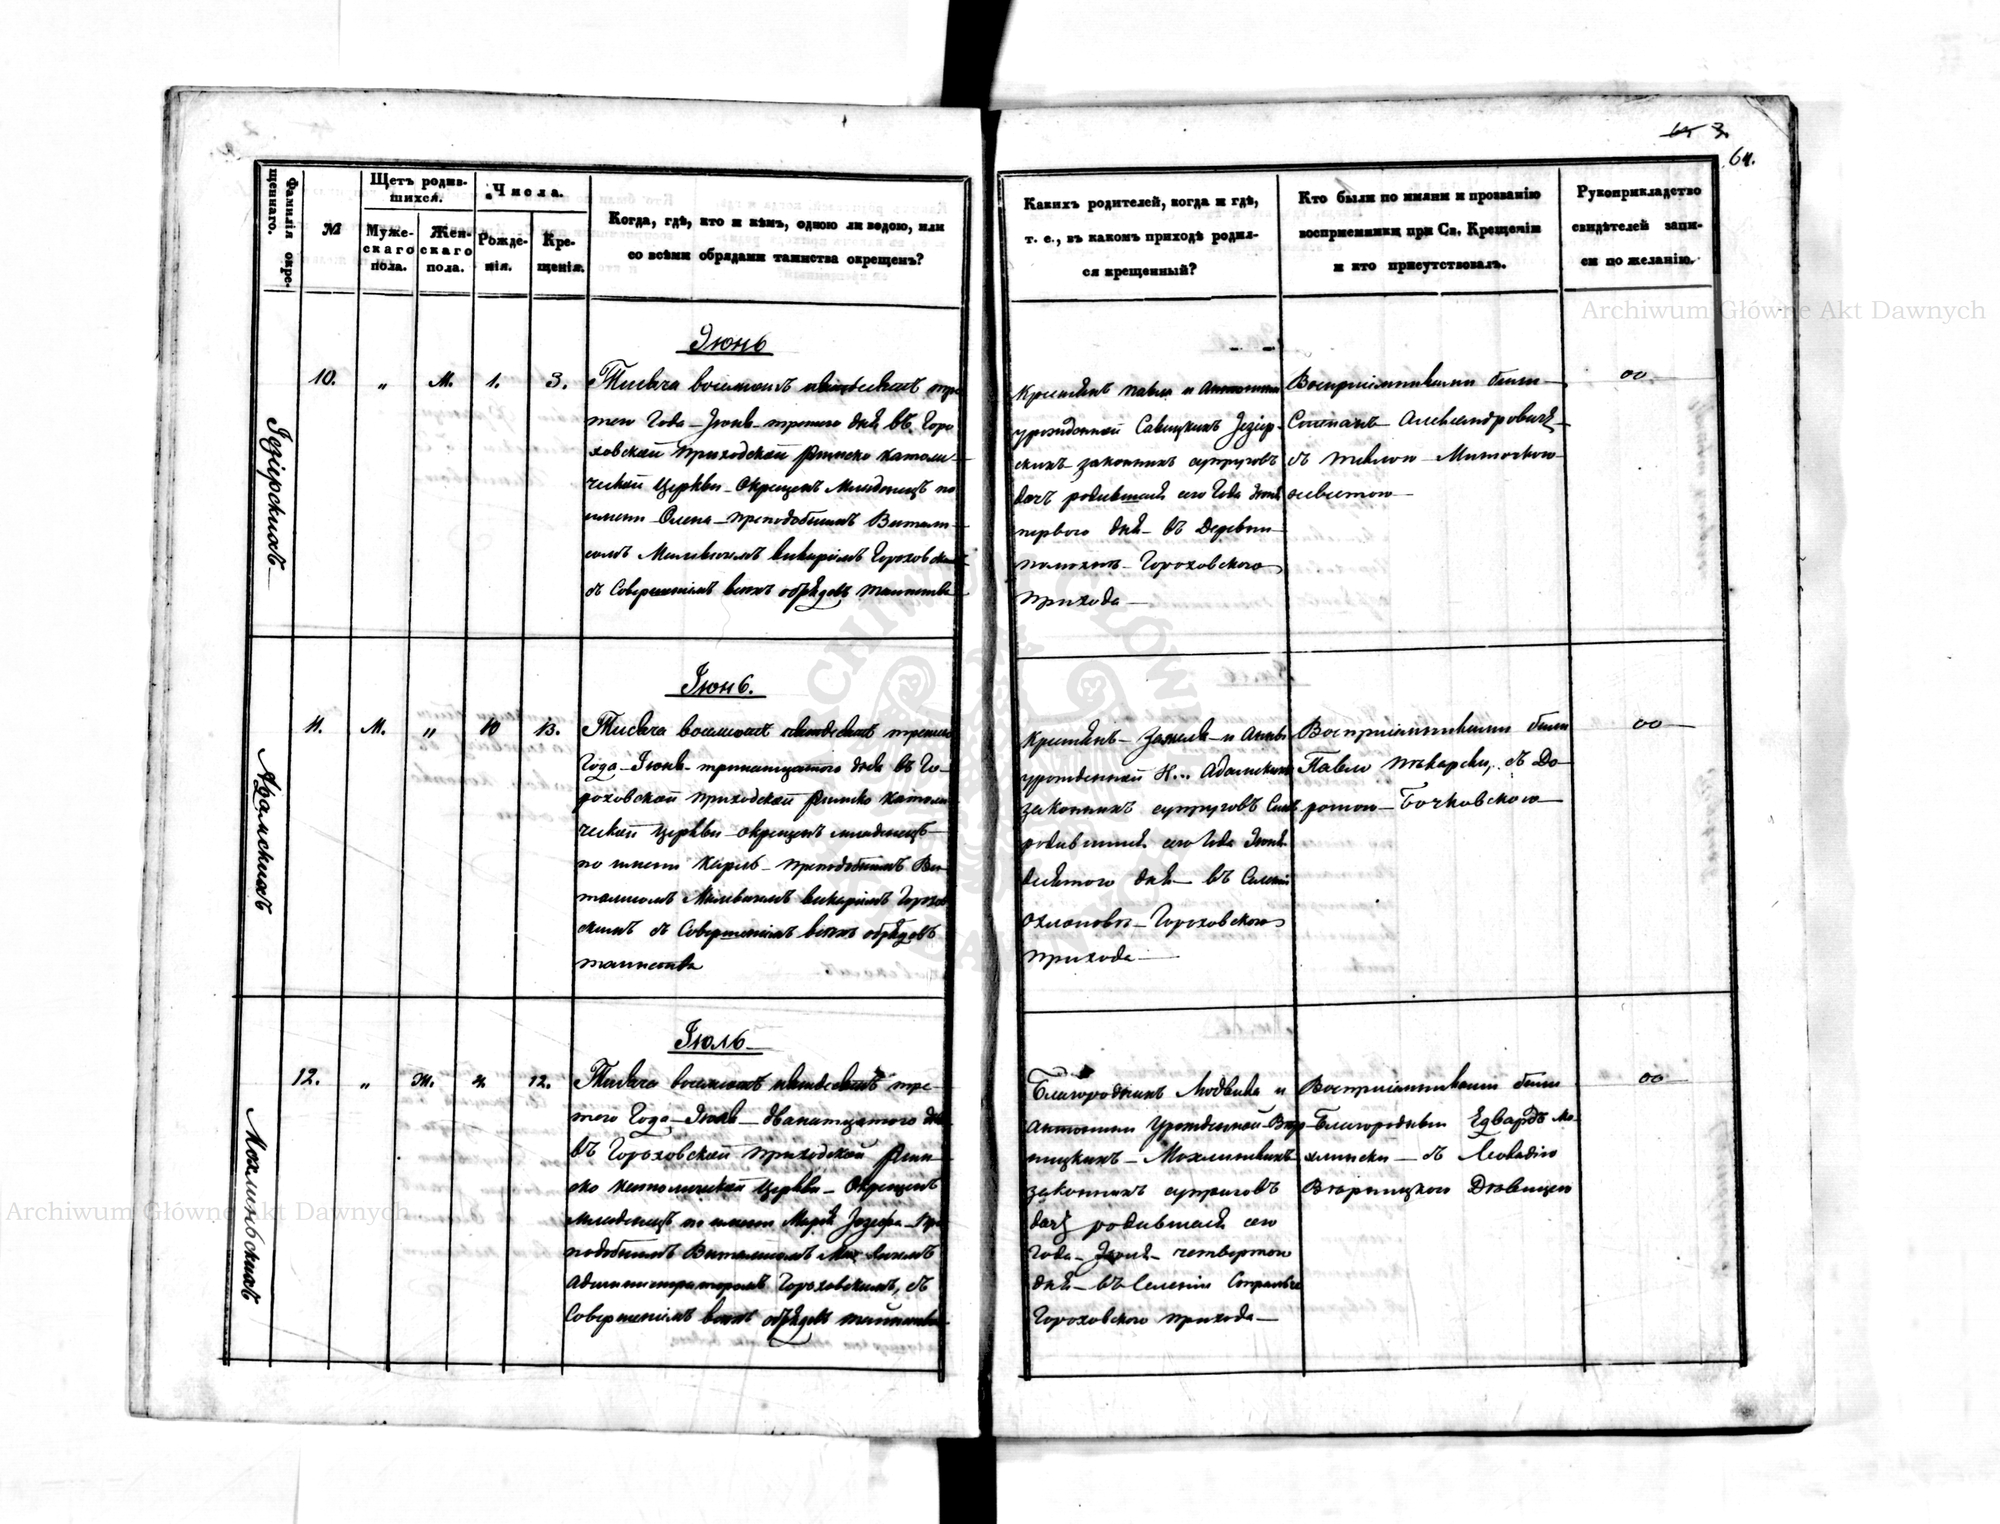 64.
Фамилія окрещеннаго.
№
Щетъ родившихся.
Мужескаго пола.
Женскаго пола.
Числа.
Рожденія.
Крещенія.
Когда, гдѣ, кто и кѣмъ, одною ли водою, или
со всѣми обрядами таинства окрещенъ?
Какихъ родителей, когда и гдѣ,
т. е., въ какомъ приходѣ родил-
ся крещенный?
Кто были по имяни и прозванію
восприемники при Св. Крещеніи
и кто присутствовалъ.
Рукоприкладство
свидѣтелей запи-
си по желанію.
Archiwum Główne Akt Dawnych
Іезіерскихъ
10.
"
М.
1.
3.
Іюнь
Тисяча восемсотъ пятьдесятъ тре
тего Года Іюня третего дня въ Горо
ховской приходской римско католи
ческой Церкви Окрещенъ Младенецъ по
имени Олена преподобнымъ Витали
сомъ викаріемъ Гороховскимъ
съ Совершеніемъ всехъ обрядовъ таинства
Крестянъ Павла и Антонины
урожденной Савицкихъ Іезіер
скихъ законныхъ супруговъ
дочь родившаяся сего Года Іюня
первого дня въ Деревни
Гороховского
прихода
Восприемниками были
Александровичъ
съ
00
Адамскихъ
11.
М.
"
10
13.
Іюнь.
Тисяча восемсотъ пятдесятъ третего
Года Іюня тринатцатого дня въ Го
роховской приходской римско католи
ческой Церкви окрещенъ младенецъ
по имени Карль преподобнымъ Ви
талисомъ викаріемъ Горохов
скимъ съ Совершеніемъ всехъ обрядовъ
таинства
Крестянъ и Анны
урожденной Н... Адамскихъ
законныхъ супруговъ Сынъ
родившийся сего Года Іюня
десятого дня въ Селеніи
Охлоповѣ Гороховского
прихода
Восприемниками были
Павло Пекарски, съ До
ротою Бочковскою
00
Мохлинскихъ
12.
"
Ж.
4.
12.
Іюль
Тисяча восемсотъ пятдесятъ тре
тего Года Іюля дванатцатого дня
въ Гороховской приходской Рим
ско католической Церкви Окрещенъ
Младенецъ по имени Марія Іозефа Пре
подобнымъ Виталисомъ
Администраторомъ Гороховскимъ, съ
Совершеніемъ всехъ обрядовъ таинства
Благородныхъ Людвика и
Антонины Урожденной
законныхъ супруговъ
дочь родившаяся сего
Года Іюля четвертого
дня въ Селеніи
Гороховского прихода
Восприемниками были
Благородны Едвардъ Мо
хлински съ Леокадіею
00
Archiwum Główne Akt Dawnych